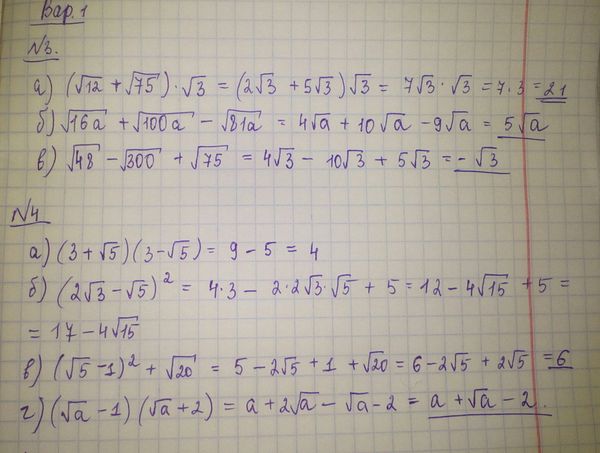 Вар. 1
№3.
а) (√12 + √75) · √3 = (2√3 + 5√3)√3 = 7√3 · √3 = 7·3 = 21
б) √16a + √100a − √81a = 4√a + 10√a − 9√a = 5√a
в) √48 − √300 + √75 = 4√3 − 10√3 + 5√3 = −√3
№4
а) (3 + √5)(3 − √5) = 9 − 5 = 4
б) (2√3 − √5)² = 4·3 − 2·2√3·√5 + 5 = 12 − 4√15 + 5 =
= 17 − 4√15
в) (√5 − 1)² + √20 = 5 − 2√5 + 1 + √20 = 6 − 2√5 + 2√5 = 6
г) (√a − 1)(√a + 2) = a + 2√a − √a − 2 = a + √a − 2.